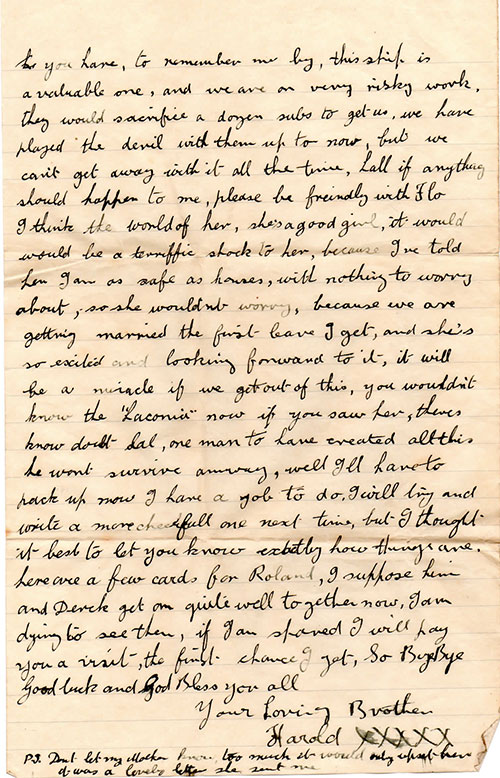 to you have, to remember me by, this ship is
a valuable one, and we are on very risky work,
they would sacrifice a dozen subs to get us, we have
played the devil with them up to now, but we
can't get away with it all the time, Lall if anything
should happen to me, please be freindly with Flo
I think the world of her, she's a good girl, it would
would be a terriffic shock to her, because I've told
her I am as safe as houses, with nothing to worry
about, so she wouldn't worry, because we are
getting married the first leave I get, and she's
so excited and looking forward to it, it will
be a miracle if we get out of this, you wouldn't
know the "Laconia" now if you saw her, theres
know doubt Lal, one man to have created all this
he wont survive anyway, well I'll have to
pack up now I have a job to do, I will try and
write a more cheerfull one next time, but I thought
it best to let you know exactly how things are.
here are a few cards for Roland, I suppose him
and Derek get on quite well together now, I am
dying to see them, if I am spared I will pay
you a visit, the first chance I get, So Bye Bye
Good luck and God Bless you all
Your Loving Brother
Harold xxxxx
P.S. Dont let my Mother know too much it would only upset her
it was a lovely letter she sent me